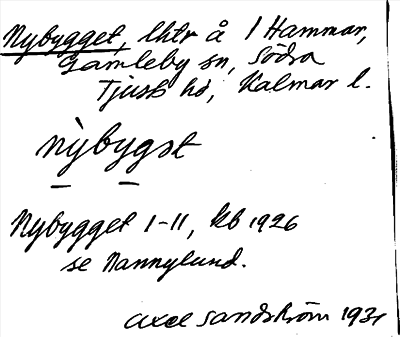 Nybygget, lhtr å 1 Hammar,
Gamleby sn, Södra
Tjust hd, Kalmar l.
nỳbygət
Nybygget 1-11, kb 1926
se Nannylund.
Axel Sandström 193